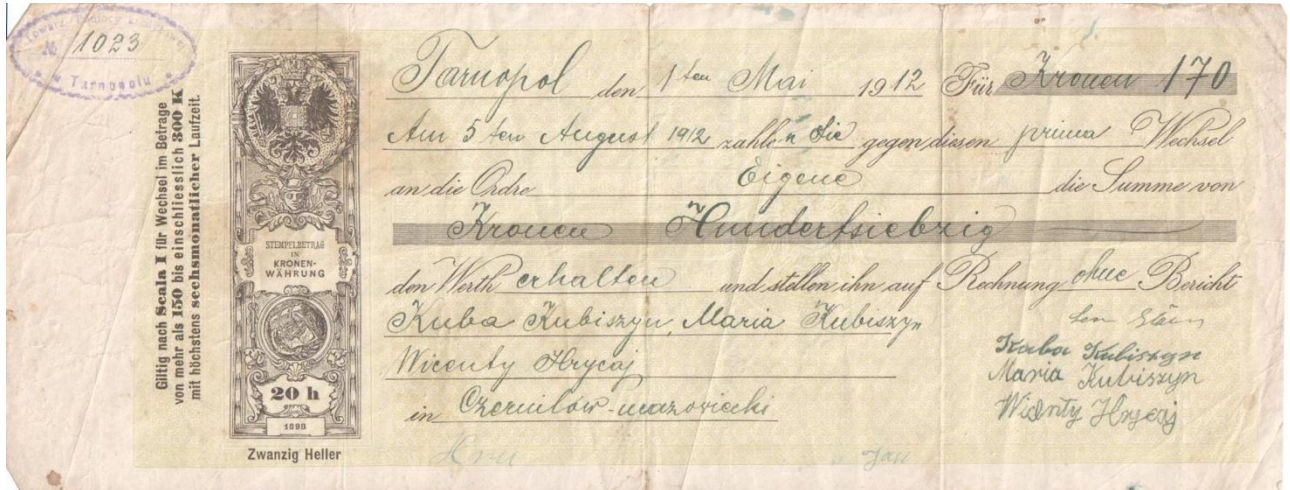 № 1023
w Tarnopolu
Giltig nach Scala I für Wechsel im Betrage
von mehr als 150 bis einschliesslich 300 K
mit höchstens sechsmonatlicher Laufzeit.
STEMPELBETRAG
IN
KRONEN-
WÄHRUNG
20 h
1898
Zwanzig Heller
Tarnopol den 1 ten Mai 1912 Für Kronen 170
Am 5 ten August 1912 zahlen Sie gegen diesen prima Wechsel
an die Ordre Eigene die Summe von
Kronen Hundertsiebzig
den Werth erhalten und stellen ihn auf Rechnung ohne Bericht
Kuba Kubiszyn, Maria Kubiszyn
Wicenty Hrycaj
in Czernilów-mazowiecki
Kuba Kubiszyn
Maria Kubiszyn
Hrycaj